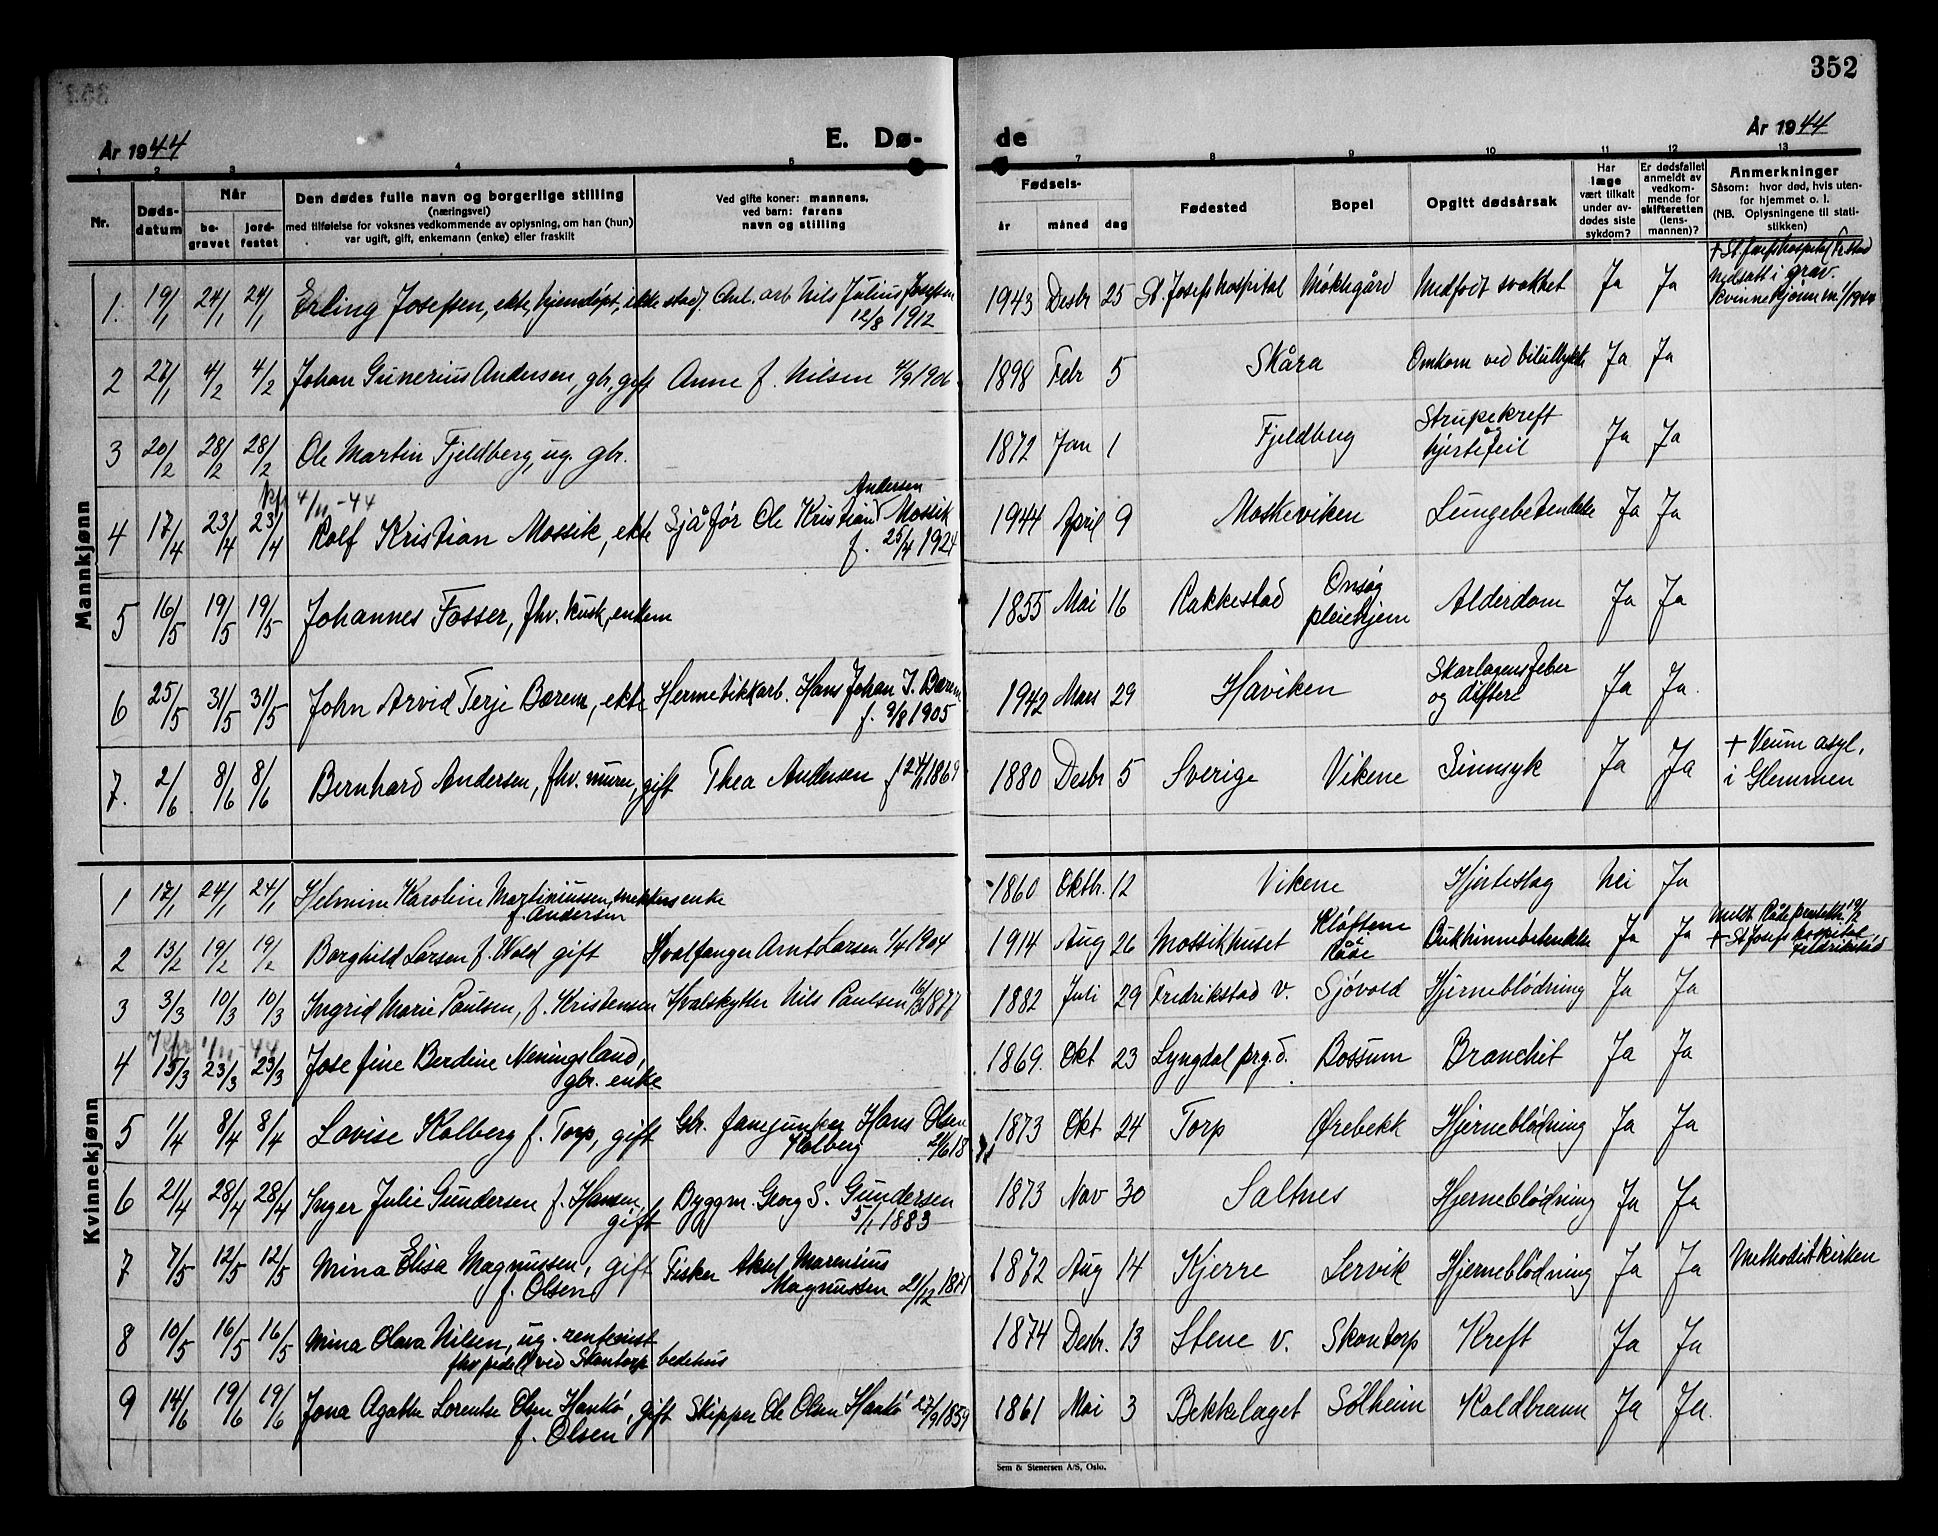 352
År 1944
E. Dø-
de
År 1944
1 2 3 4 5 7 8 9 10 11 12 13
Nr.
Døds-
datum
Når
be-
gravet
jord-
festet
Den dødes fulle navn og borgerlige stilling
(næringsvei)
med tilføielse for voksnes vedkommende av oplysning, om han (hun)
var ugift, gift, enkemann (enke) eller fraskilt
Ved gifte koner: mannens,
ved barn: farens
navn og stilling
Fødsels-
år måned dag
Fødested
Bopel
Opgitt dødsårsak
Har
læge
vært tilkalt
under av-
dødes siste
sykdom?
Er dødsfallet
anmeldt av
vedkom-
mende for
skifteretten
(lens-
mannen)?
Anmerkninger
Såsom: hvor død, hvis uten-
for hjemmet o. l.
(NB. Oplysningene til stati-
stikken)
Mannkjønn
+ St. Josefshospital, Fr.stad
Nedsatt i grav
kvinnekjønn nr. 1/1944
1. 19/1 24/1 24/1 Erling Josefsen, ekte, hjemdøpt, ikke stadf. Anl. arb Nils Julius Josefsen 1943 Desbr 25 St. Josefshospital Møklegård Medfødt svakhet Ja Ja
12/8 1912
2 27/1 4/2 4/2 Johan Gunerius Andersen, gbr, gift Anne f. Nilsen 4/9 1906 1898 Febr 5 Skåra Omkom ved bilulykke Ja Ja
3 20/2 28/2 28/2 Ole Martin Fjeldberg, ug. gbr. 1872 Jan 1 Fjeldberg Strupekreft
og
hjertefeil Ja Ja
4/11-44
Andersen
4 17/4 23/4 23/4 Rolf Kristian Mossik, ekte Sjåfør Ole Kristian Mossik 1944 April 9 Moskeviken Lungebetendelse Ja Ja
f. 25/4 1924
5 16/5 19/5 19/5 Johannes Fosser, fhv. kusk, enkem 1855 Mai 16 Rakkestad Onsøy
pleiehjem Alderdom Ja Ja
6 25/5 31/5 31/5 John Arvid Terje Bærem, ekte Hermetikkarb. Hans Johan I. Bærem 1942 Mars 29 Haviken Skarlagensfeber
og difteri Ja Ja.
f. 9/8 1905
7. 2/6 8/6 8/6 Bernhard Andersen, fhv. murer, gift Thea Andersen 1869 1880 Desbr 5 Sverige Vikene Sinnsyk Ja Ja + Veum asyl,
i Glemmen
Kvinnekjønn
1 17/1 24/1 24/1 Helmine Karoline Martiniussen, enke
f. Andersen 1860 Oktbr. 12 Vikene Hjerteslag Nei Ja
2 13/2 19/2 19/2 Borghild Larsen f. Wold gift Hvalfanger Arnt Larsen 1/4 1904 1914 Aug 26 Mossikhuset Kløften
Råde Bukhinnebetendelse Ja Ja Meldt Råde 19/2
+ St Josefs hospital
Fredrikstad
3 3/3 10/3 10/3 Ingrid Marie Paulsen, f. Kristensen Hvalskytter Nils Paulsen 16/3 1877 1882 Juli 29 Fredrikstad v. Sjøvold Hjerneblødning Ja Ja
4 15/3 23/3 23/3 Josefine Berdine Neningsland,
gbr. enke 1869. Okt 23 Lyngdal prg.d. Bossum Bronchit Ja Ja
5 1/4 8/4 8/4 Lovise Kolberg f. Torp, gift Gbr. Hans Olsen
Kolberg 1873 Okt 24 Torp Ørebekk Hjerneblødning Ja Ja
6 21/4 28/4 28/4 Inger Julie Gundersen f. Hansen,
gift Byggm. Georg S. Gundersen
5/1 1883 1873 Nov 30 Saltnes Hjerneblødning Ja Ja
7 7/5 12/5 12/5 Mina Elisa Magnussen, gift
f. Olsen Fisker Aksel Marenius
Magnussen 21/12 1871 1872 Aug 14 Kjerre Lervik Hjerneblødning Ja Ja Methodistkirken
8 10/5 16/5 16/5 Mina Olava Nilsen, ug. rentenist
fhv pedell ved Skontorp bedehus 1874 Desbr. 13 Stene v. Skontorp Kreft Ja Ja
9 14/6 19/6 19/6 Jona Agathe Lorentse Olsen Hankø, gift
f. Olsen Skipper Ole Olsen Hankø 27/9 1859 1861 Mai 3 Bekkelaget Solheim Koldbrann Ja Ja.
Sem & Stenersen A/S, Oslo.